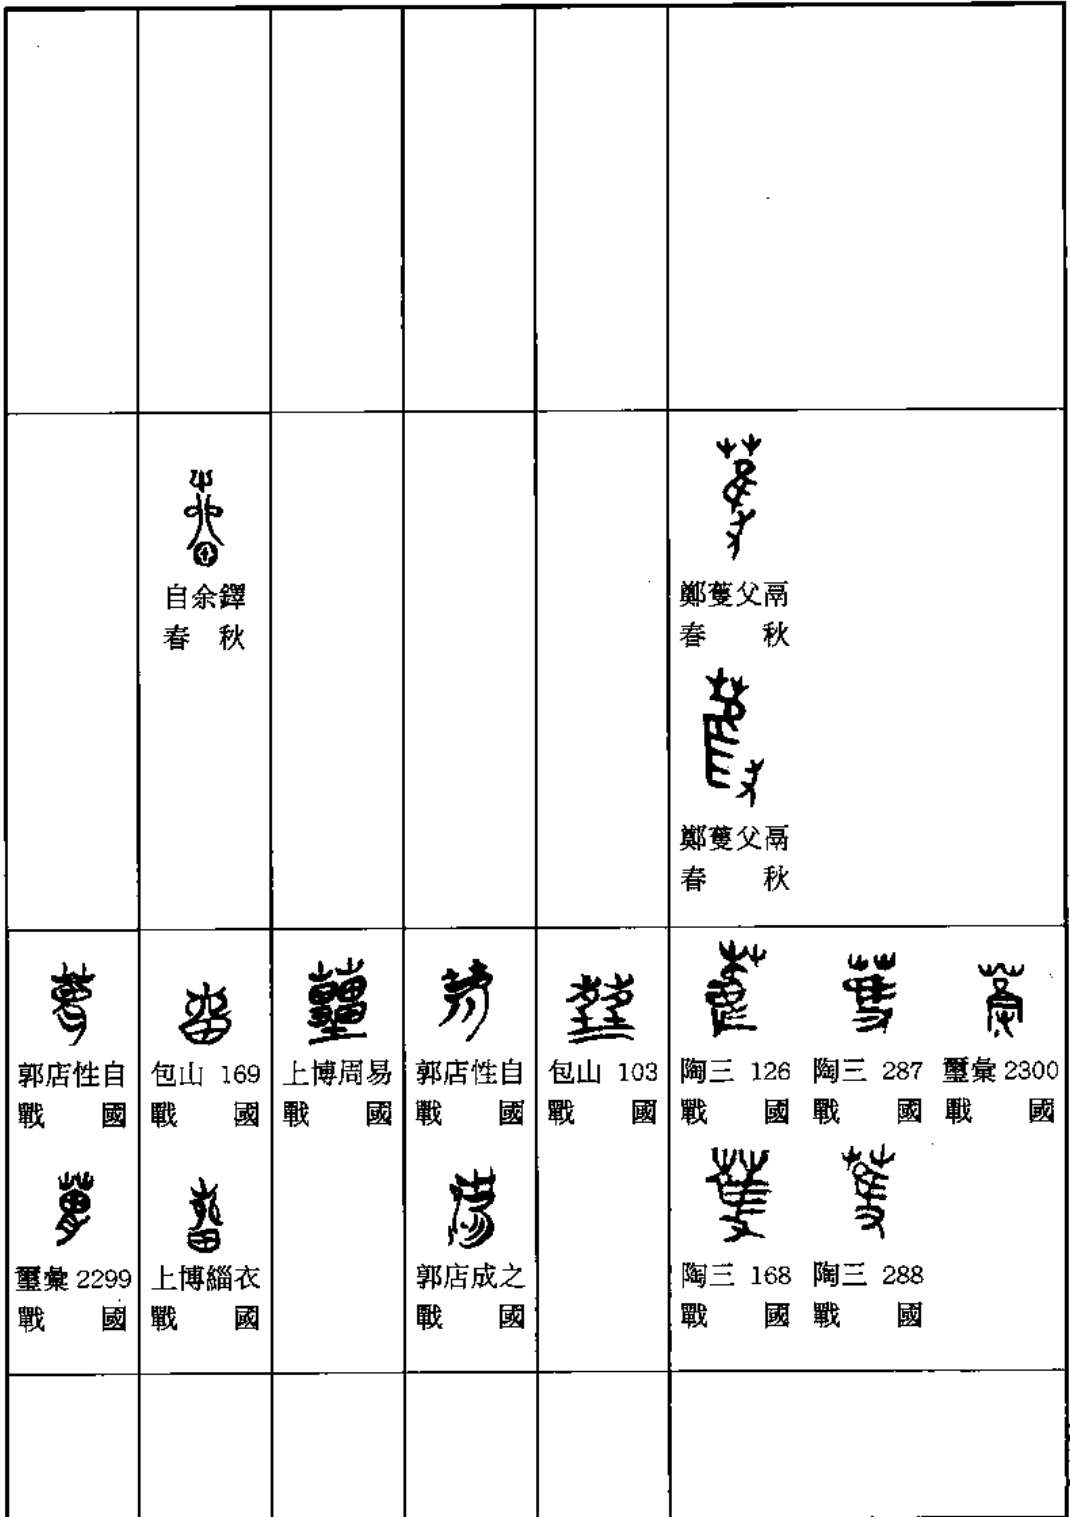 自余鐸
春 秋
鄭蒦父鬲
春 秋
鄭蒦父鬲
春 秋
郭店性自
戰 國
包山 169
戰 國
上博周易
戰 國
郭店性自
戰 國
包山 103
戰 國
陶三 126
戰 國
陶三 287
戰 國
璽彙 2300
戰 國
璽彙 2299
戰 國
上博緇衣
戰 國
郭店成之
戰 國
陶三 168
戰 國
陶三 288
戰 國